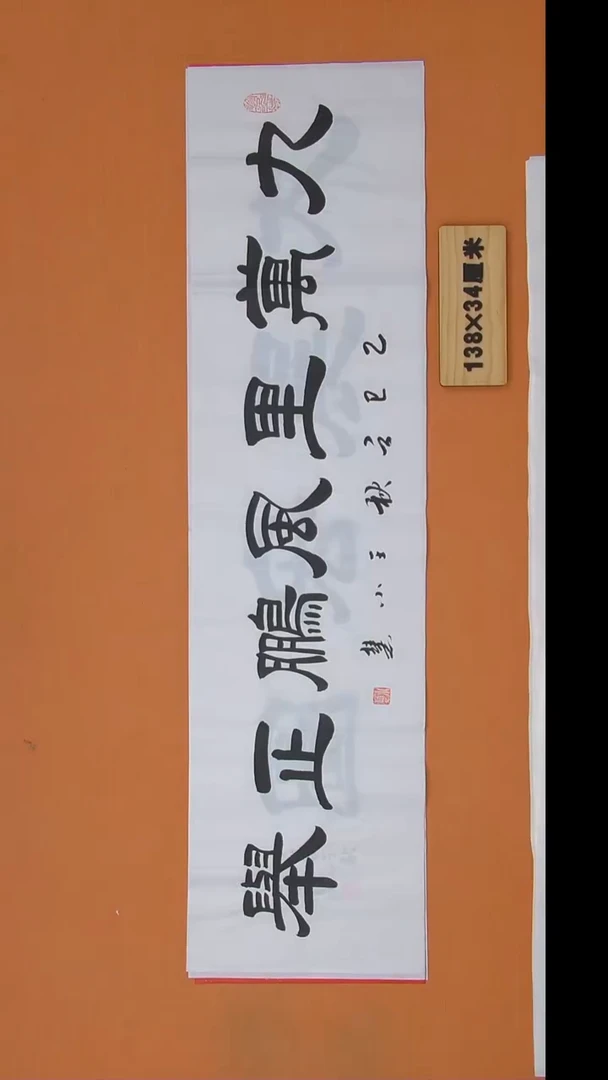 九萬里風鵬正舉
乙巳秋王小
138×34厘米